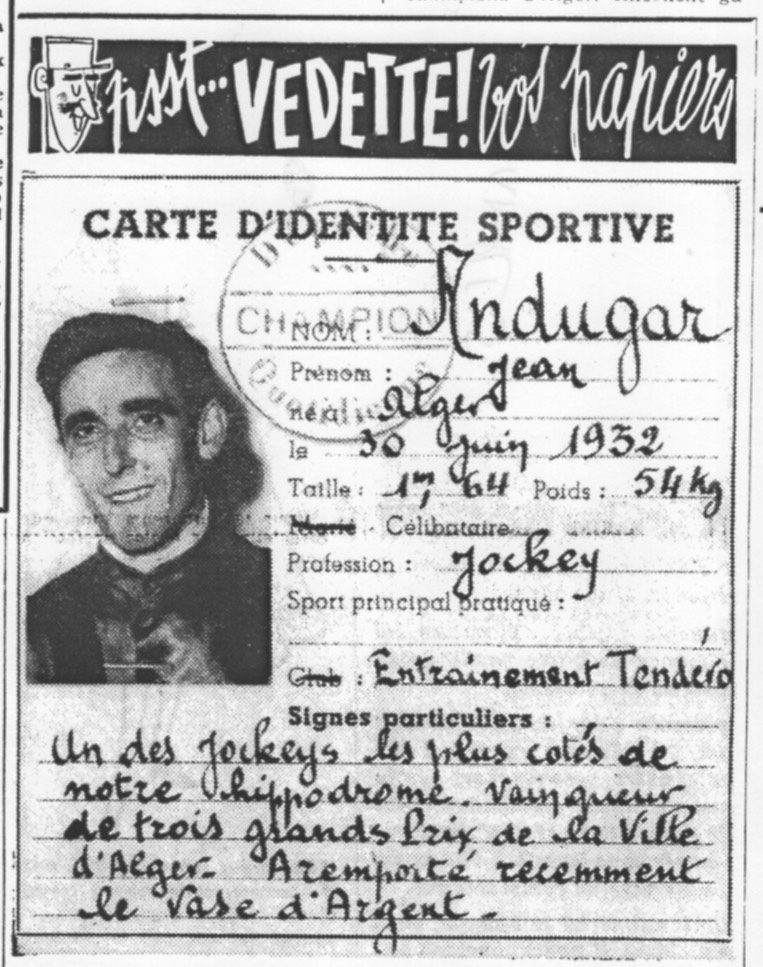 psst... VEDETTE! vos papiers
CARTE D'IDENTITE SPORTIVE
CHAMPION
Quotidiens
NOM : Andugar
Prénom : Jean
né à Alger
le 30 Juin 1932
Taille : 1m, 64 Poids : 54 kg
Marié - Célibataire
Profession : Jockey
Sport principal pratiqué :
Club : Entrainement Tendéro
Signes particuliers :
Un des Jockeys les plus cotés de
notre hippodrome. Vainqueur
de trois grands Prix de la Ville
d'Alger - A remporté recemment
le Vase d'Argent -